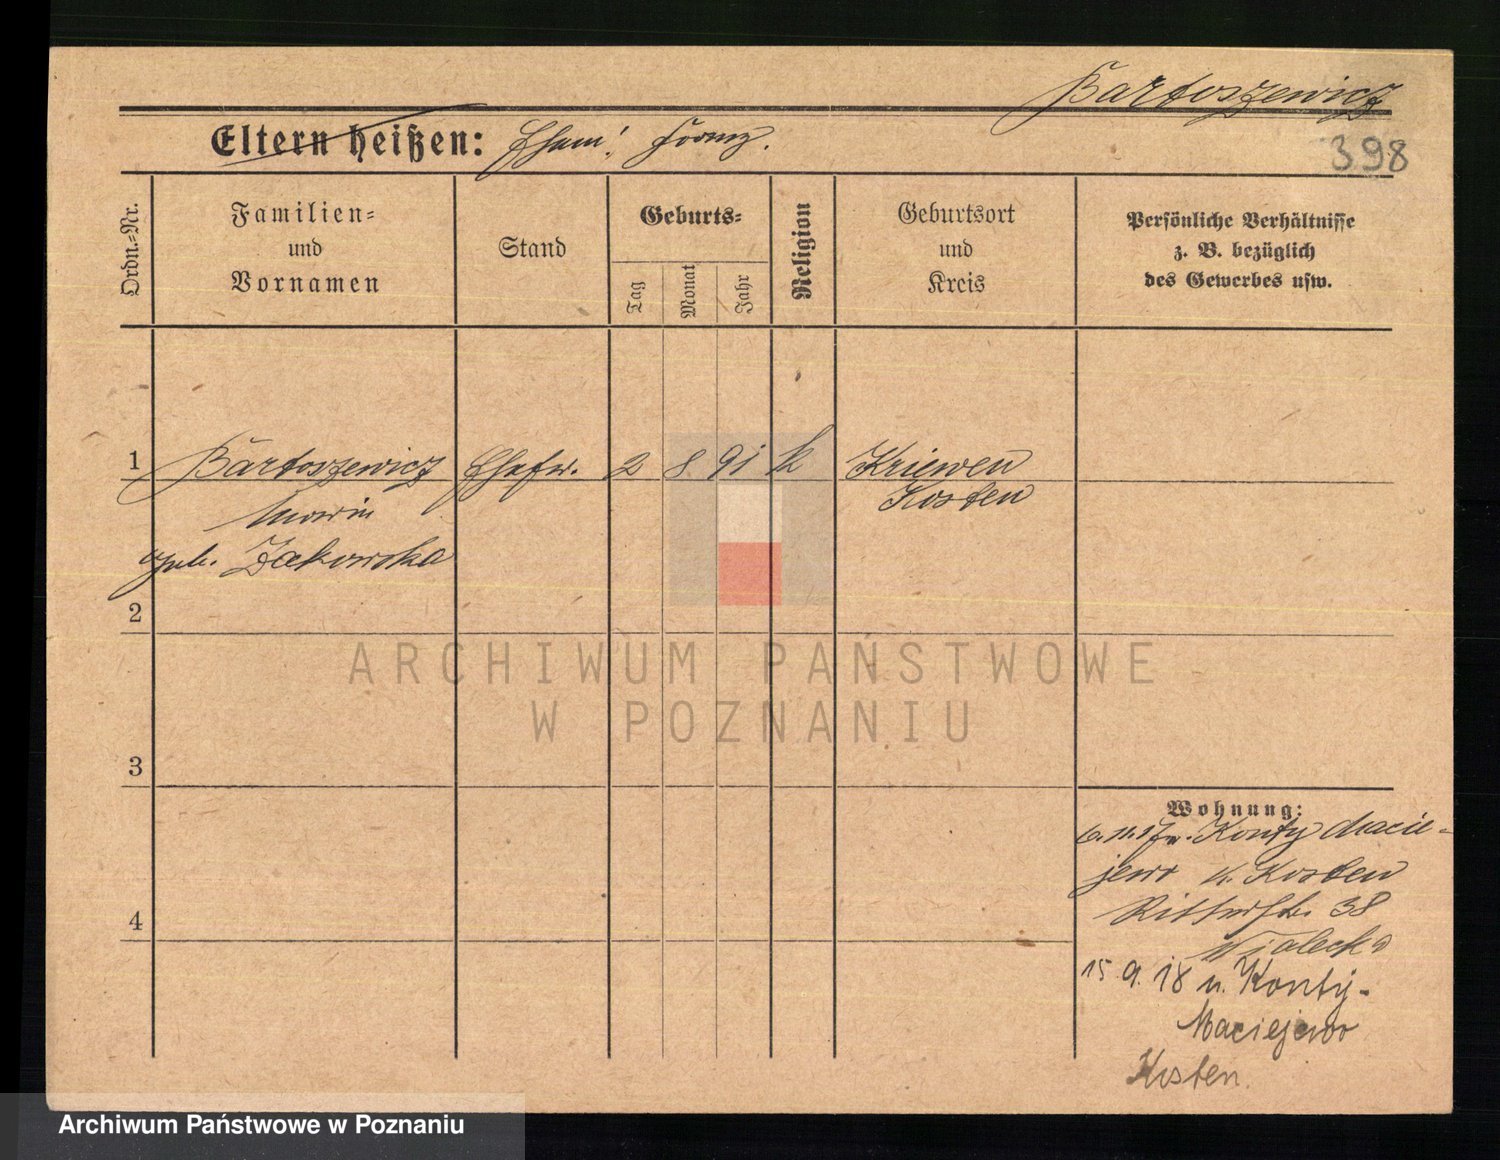 Bartoszewicz
Eltern heißen: Ehem: Franz.
398
Ordn.=Nr.
Familien=
und
Vornamen
Stand
Geburts=
Tag
Monat
Jahr
Religion
Geburtsort
und
Kreis
Persönliche Verhältnisse
z. B. bezüglich
des Gewerbes usw.
1 Bartoszewicz Ehefr. 2 8. 91 k Kriewen
Kosten
Maria
geb. Żakowska
2
3
4
Wohnung:
6.11.17 v. Konty Macie-
jewo K. Kosten
Ritterstr. 38
Wialecka
15 9. 18 n. Konty-
Maciejewo
Kosten.
ARCHIWUM PAŃSTWOWE
W POZNANIU
Archiwum Państwowe w Poznaniu